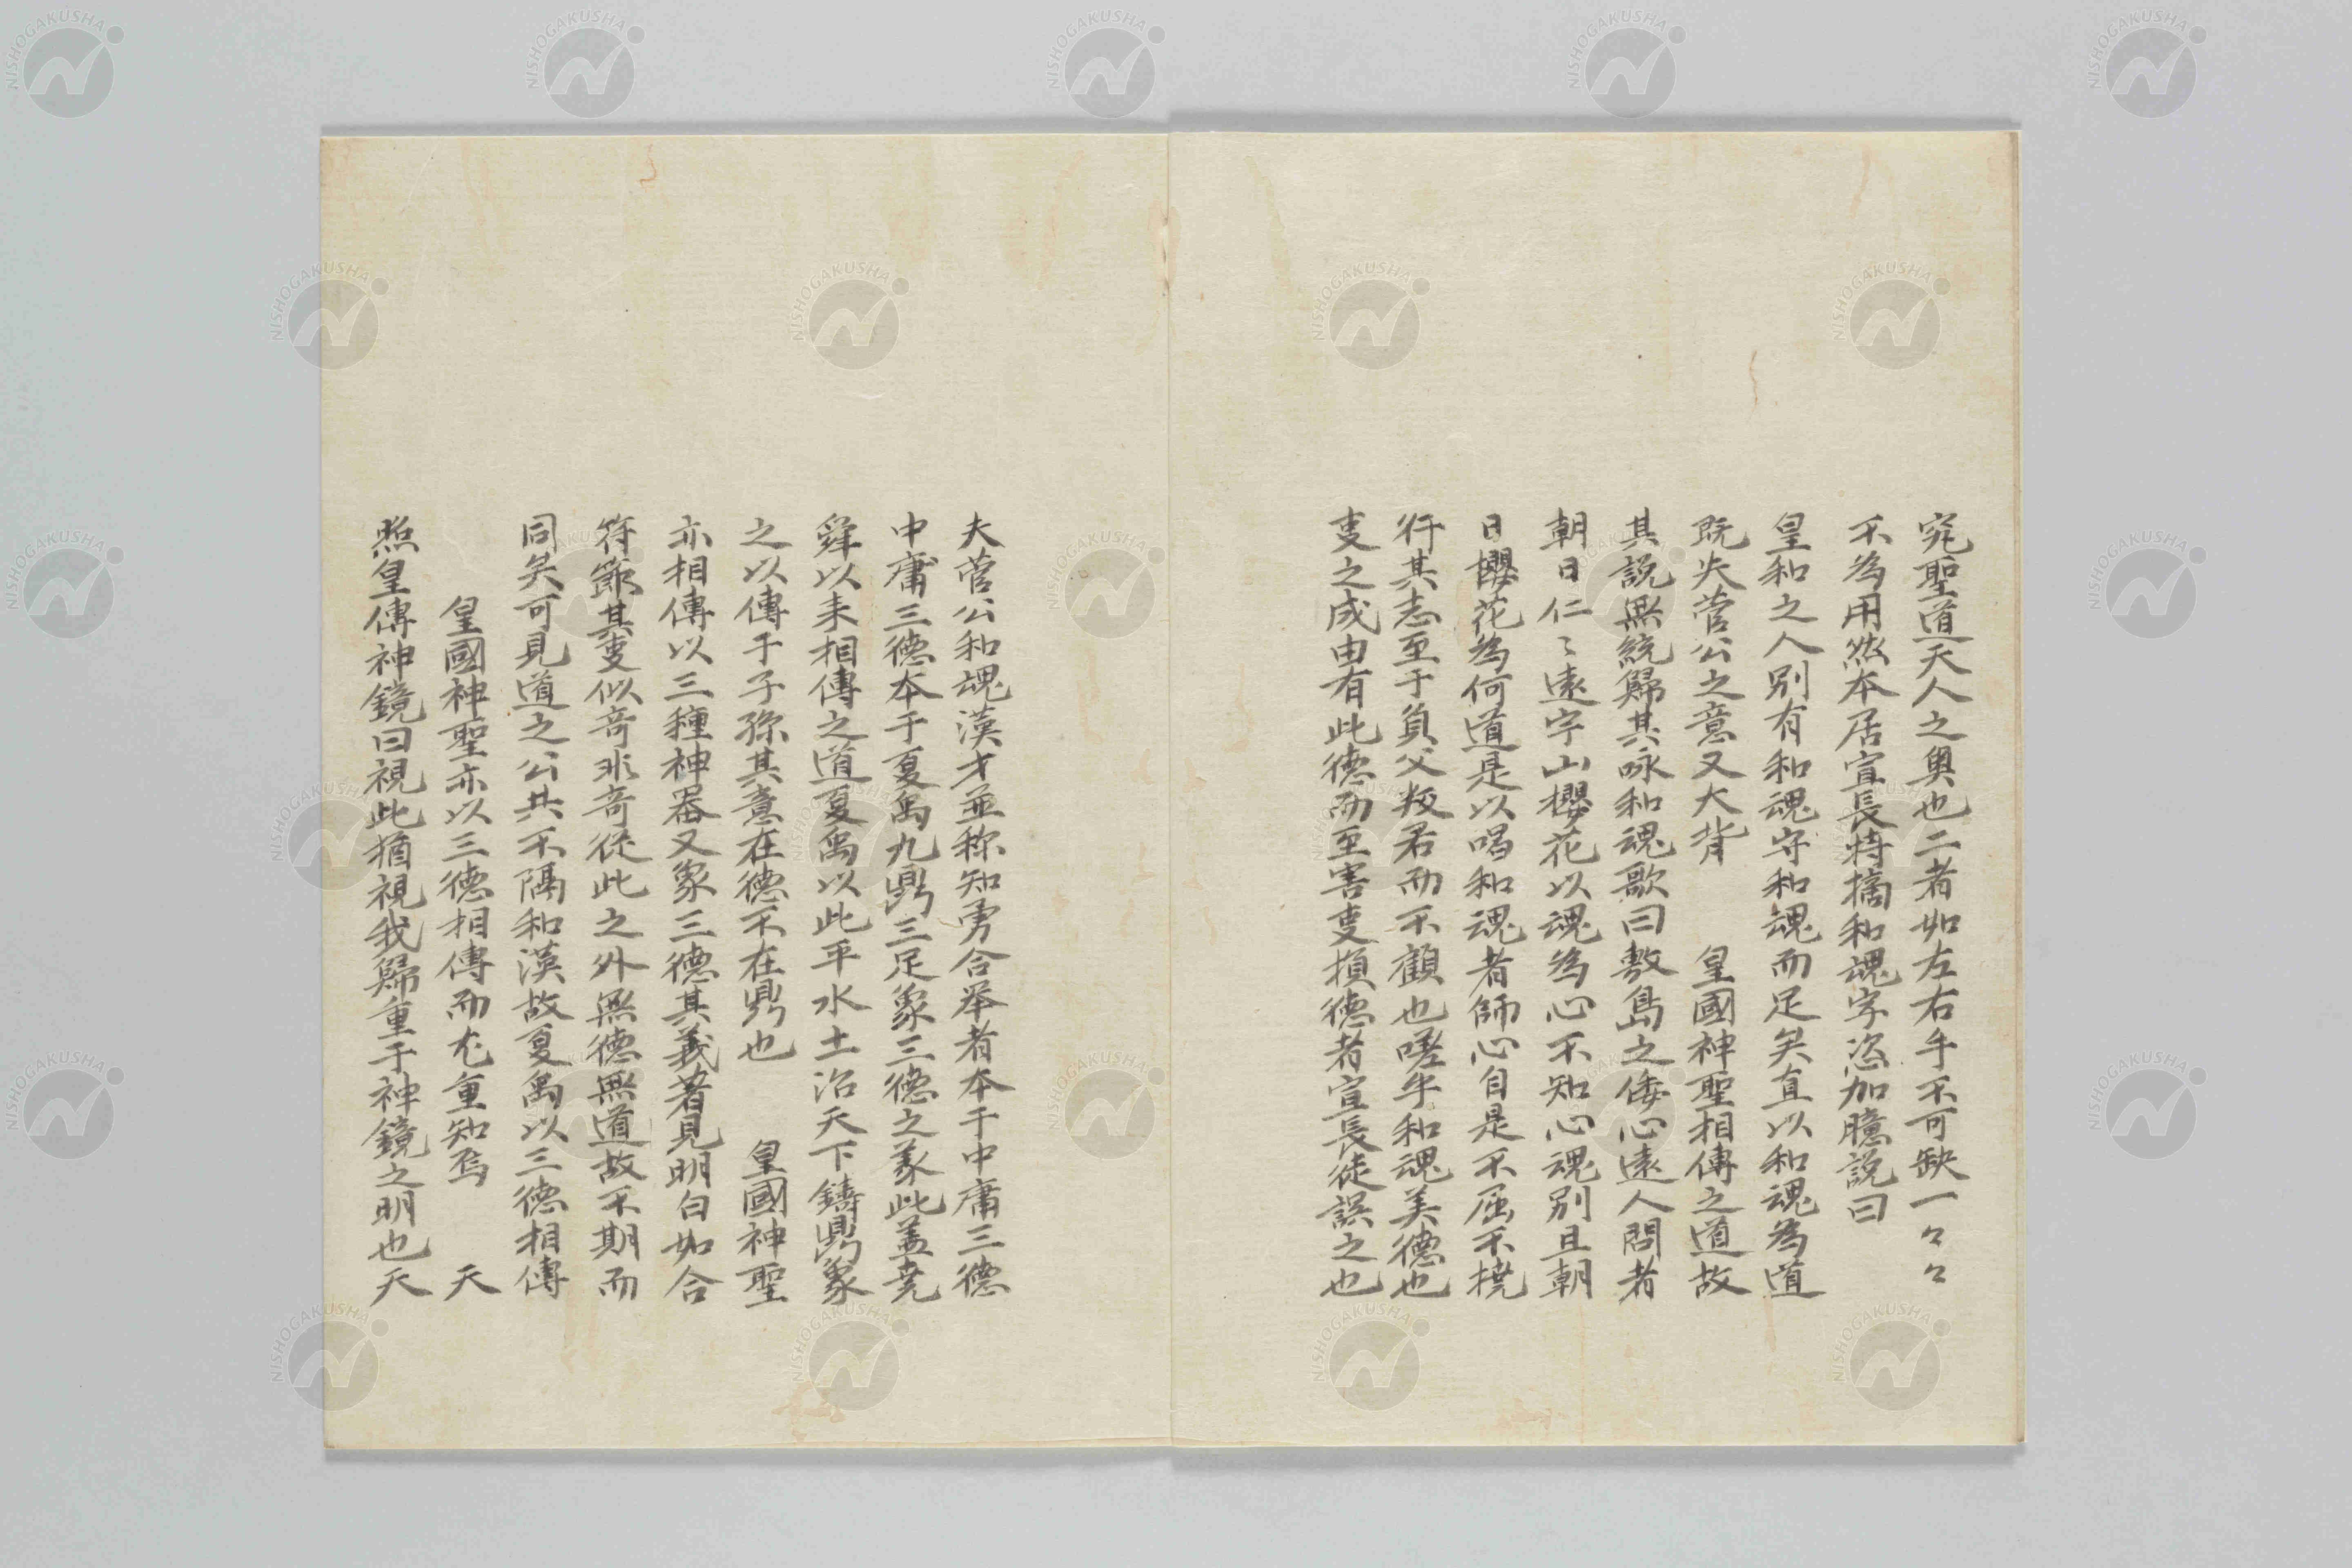 究聖道天人之奧也二者如左右手不可缺一々々
不為用然本居宣長特摘和魂字恣加臆說曰
皇和之人別有和魂守和魂而足矣直以和魂為道
既失菅公之意又大背　皇國神聖相傳之道故
其說無統歸其咏和魂歌曰敷島之倭心遠人問者
朝日仁〻遠宇山櫻花以魂為心不知心魂別且朝
日櫻花為何道是以唱和魂者師心自是不屈不撓
行其志至于負父叛君而不顧也嗟乎和魂美德也
叓之成由有此德而至害叓損德者宣長徒誤之也
夫菅公和魂漢才並称知勇合举者本于中庸三德
中庸三德本于夏禹九鼎三足象三德之象此盖堯
舜以来相傳之道夏禹以此平水土治天下鑄鼎象
之以傳于子孫其意在德不在鼎也　皇國神聖
亦相傳以三種神器又象三德其義著見明白如合
符節其叓似奇非奇從此之外無德無道故不期而
同矣可見道之公共不隔和漢故夏禹以三德相傳
皇國神聖亦以三德相傳而尤重知焉　天
照皇傳神鏡曰視此猶視我歸重于神鏡之明也天
NISHOGAKUSHA